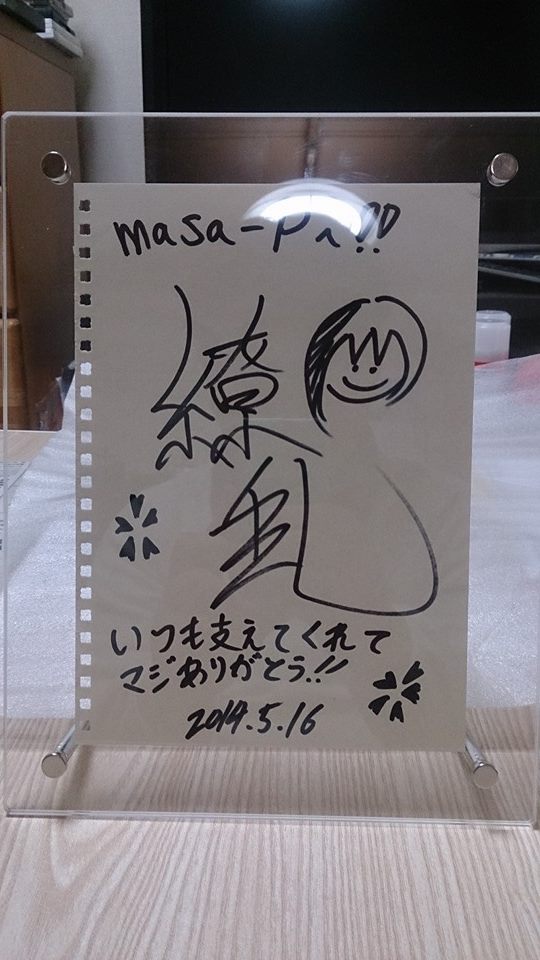 masa-Pへ!!
繚
乱
いつも支えてくれて
マジありがとう!!
2014.5.16